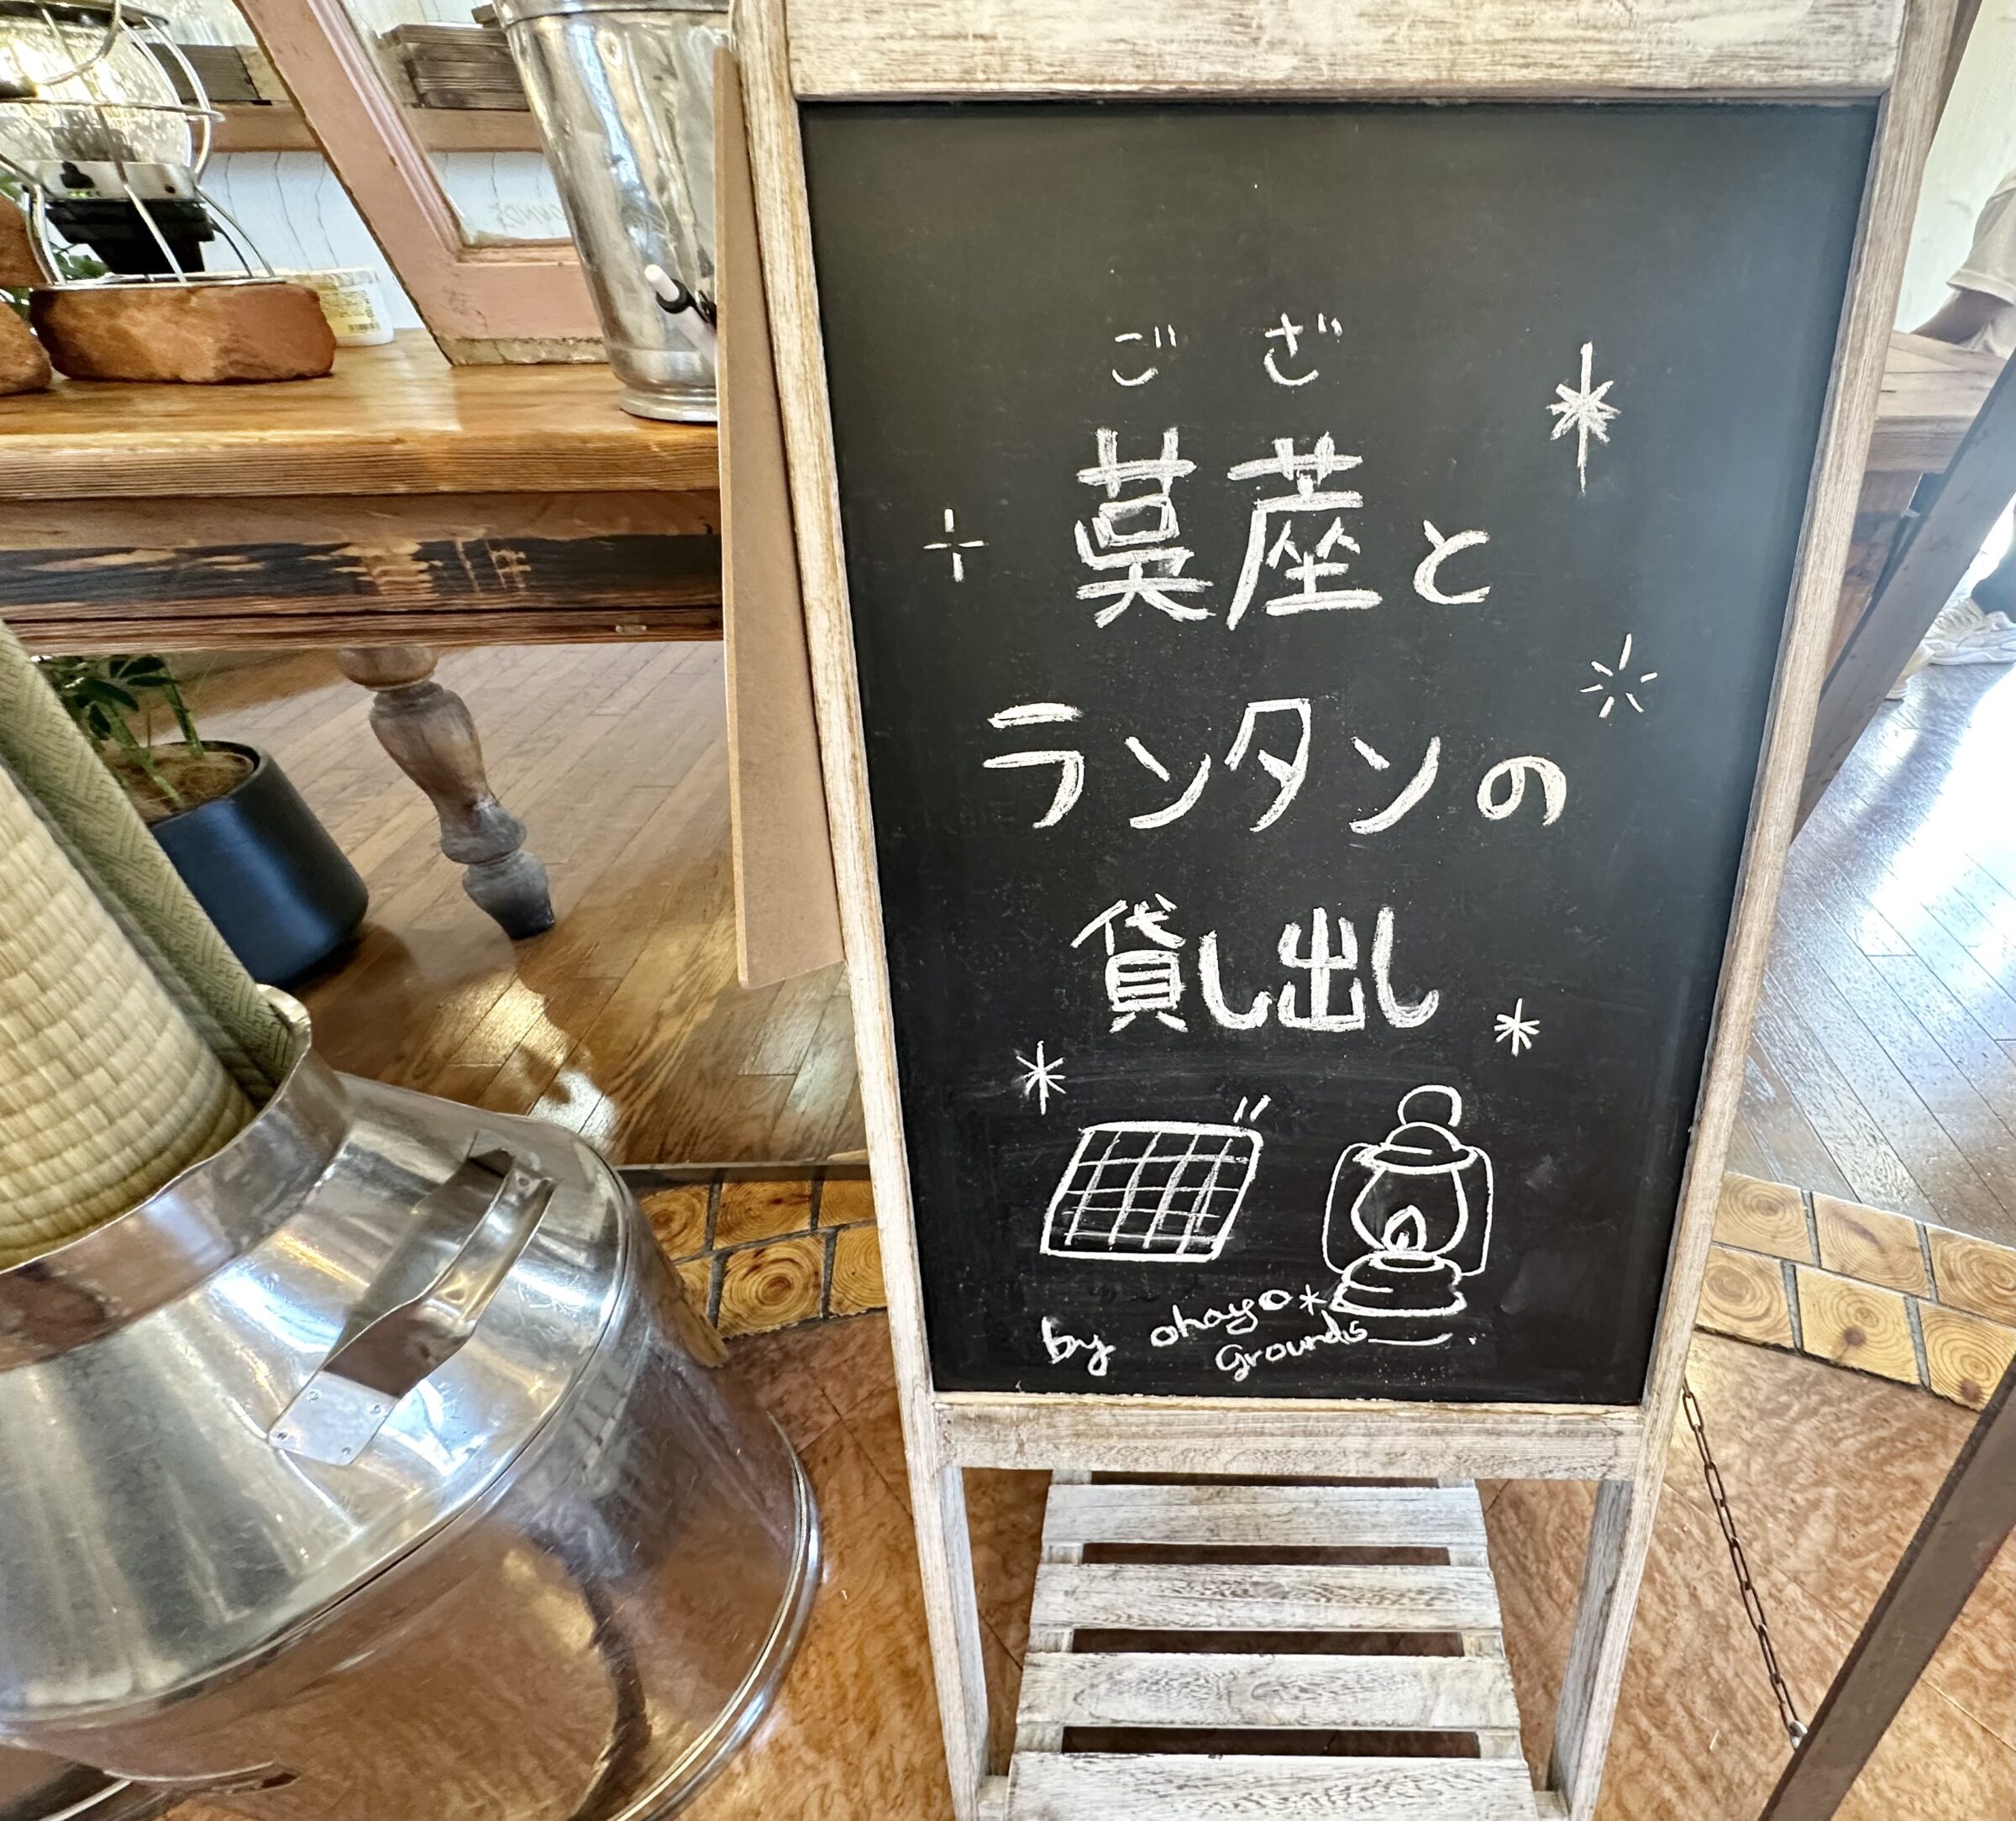 ござ
茣蓙と
ランタンの
貸し出し
by ohayo
grounds